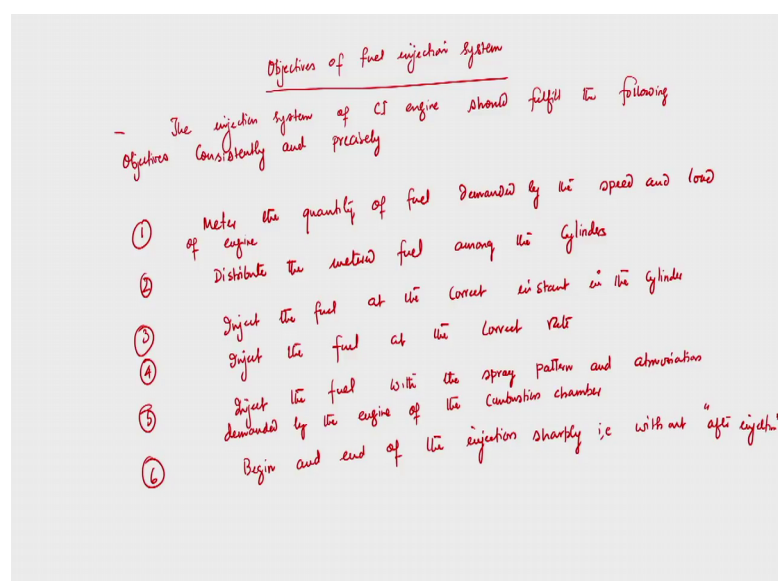 Objectives of fuel injection system
- The injection system of CI engine should fulfill the following
Objectives Consistently and precisely
① Meter the quantity of fuel demanded by the speed and load
of engine
② Distribute the metered fuel among the Cylinders
③ Inject the fuel at the Correct instant in the Cylinder
④ Inject the fuel at the Correct rate
⑤ Inject the fuel with the spray pattern and
demanded by the engine of the Combustion chamber
⑥ Begin and end of the injection sharply i,e without "after injection"